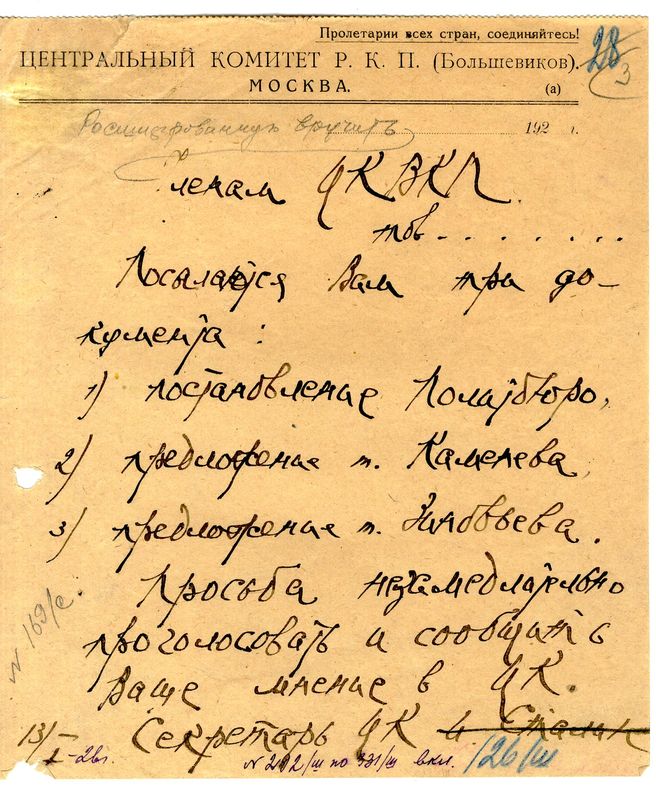 Пролетарии всех стран, соединяйтесь!
28/3
ЦЕНТРАЛЬНЫЙ КОМИТЕТ Р. К. П. (Большевиков).
МОСКВА. (а)
Расшифрованную вручить 192 г.
Членам ЦК ВКП.
тов. . . . . . . .
Посылаются Вам три до-
кумента:
1) постановление Политбюро,
2) предложение т. Каменева,
3) предложение т. Зиновьева.
Просьба незамедлительно
проголосовать и сообщить
Ваше мнение в ЦК.
N 169/с.
Секретарь ЦК И Сталин
13/I-26г.
N 292/III по 331/III вкл. 126/III